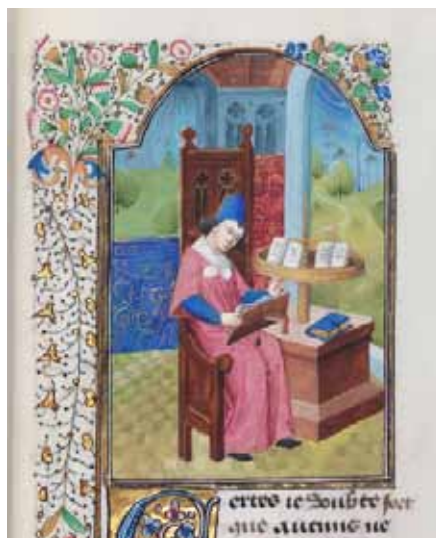 Certes ie doubte fort
que aucuns ne